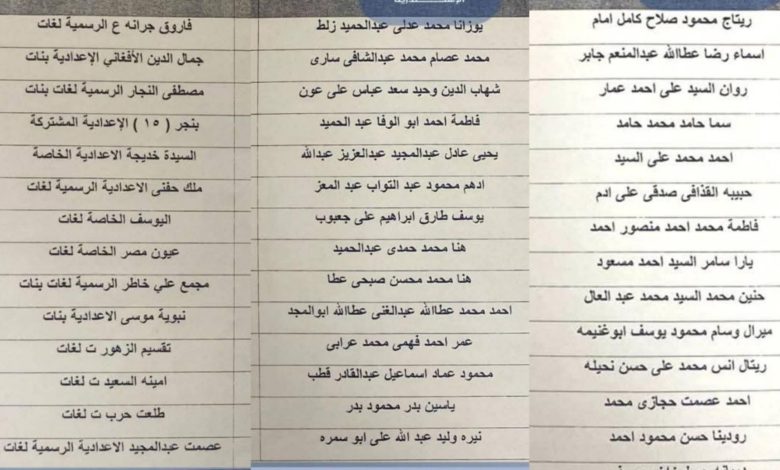 ريتاج محمود صلاح كامل امام
اسماء رضا عطاالله عبدالمنعم جابر
روان السيد على احمد عمار
سما حامد محمد حامد
احمد محمد على السيد
حبيبه القذافى صدقى على ادم
فاطمة محمد احمد منصور احمد
يارا سامر السيد احمد مسعود
حنين محمد السيد محمد عبد العال
ميرال وسام محمود يوسف ابوغنيمه
ريتال انس محمد على حسن نحيله
احمد عصمت حجازى محمد
رودينا حسن محمود احمد
يوزانا محمد عدلى عبدالحميد زلط
محمد عصام محمد عبدالشافى سارى
شهاب الدين وحيد سعد عباس على عون
فاطمة احمد ابو الوفا عبد الحميد
يحيى عادل عبدالمجيد عبدالعزيز عبدالله
ادهم محمود عبد التواب عبد المعز
يوسف طارق ابراهيم على جعبوب
هنا محمد حمدى عبدالحميد
هنا محمد محسن صبحى عطا
احمد محمد عطاالله عبدالغنى عطاالله ابوالمجد
عمر احمد فهمى محمد عرابى
محمود عماد اسماعيل عبدالقادر قطب
ياسين بدر محمود بدر
نيره وليد عبد الله على ابو سمره
فاروق جرانه ع الرسمية لغات
جمال الدين الأفغاني الإعدادية بنات
مصطفى النجار الرسمية لغات بنات
بنجر ( ١٥ ) الإعدادية المشتركة
السيدة خديجة الاعدادية الخاصة
ملك حفنى الاعدادية الرسمية لغات
اليوسف الخاصة لغات
عيون مصر الخاصة لغات
مجمع علي خاطر الرسمية لغات بنات
نبوية موسى الاعدادية بنات
تقسيم الزهور ت لغات
امينه السعيد ت لغات
طلعت حرب ت لغات
عصمت عبدالمجيد الاعدادية الرسمية لغات